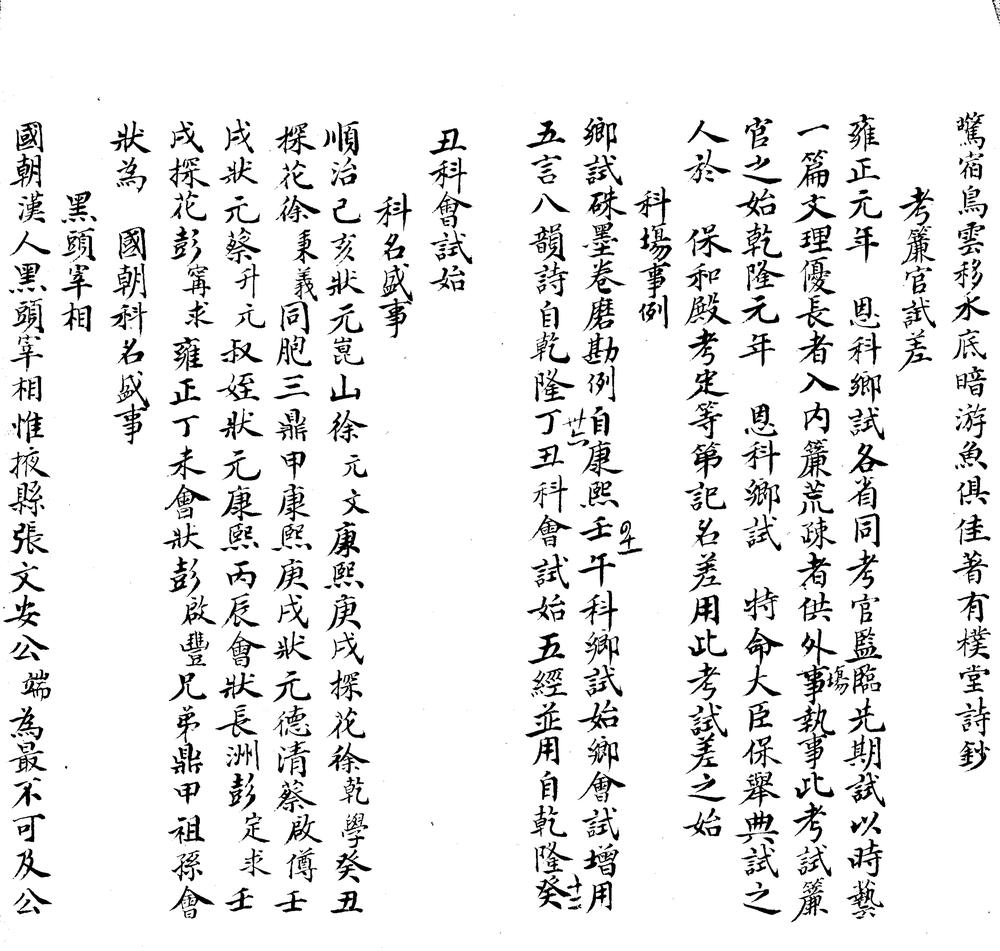 驚宿鳥雲移水底暗游魚俱佳著有樸堂詩鈔
考簾官試差
雍正元年　恩科鄉試各省同考官監臨先期試以時藝
一篇文理優長者入內簾荒疎者供外塲事執事此考試簾
官之始乾隆元年　恩科鄉試　特命大臣保舉典試之
人於　保和殿考定等第記名差用此考試差之始
科塲事例
鄉試硃墨卷磨勘例自康熙壬午科鄉試始鄉會試增用
四十一
五言八韻詩自乾隆丁丑科會試始五經並用自乾隆癸
廿二
十二
丑科會試始
科名盛事
順治己亥狀元崑山徐元文康熙庚戌探花徐乾學癸丑
探花徐秉義同胞三鼎甲康熙庚戌狀元德清蔡啟僔壬
戌狀元蔡升元叔姪狀元康熙丙辰會狀長洲彭定求壬
戌探花彭寧求雍正丁未會狀彭啟豐兄弟鼎甲祖孫會
狀為　國朝科名盛事
黑頭宰相
國朝漢人黑頭宰相惟掖縣張文安公端為最不可及公